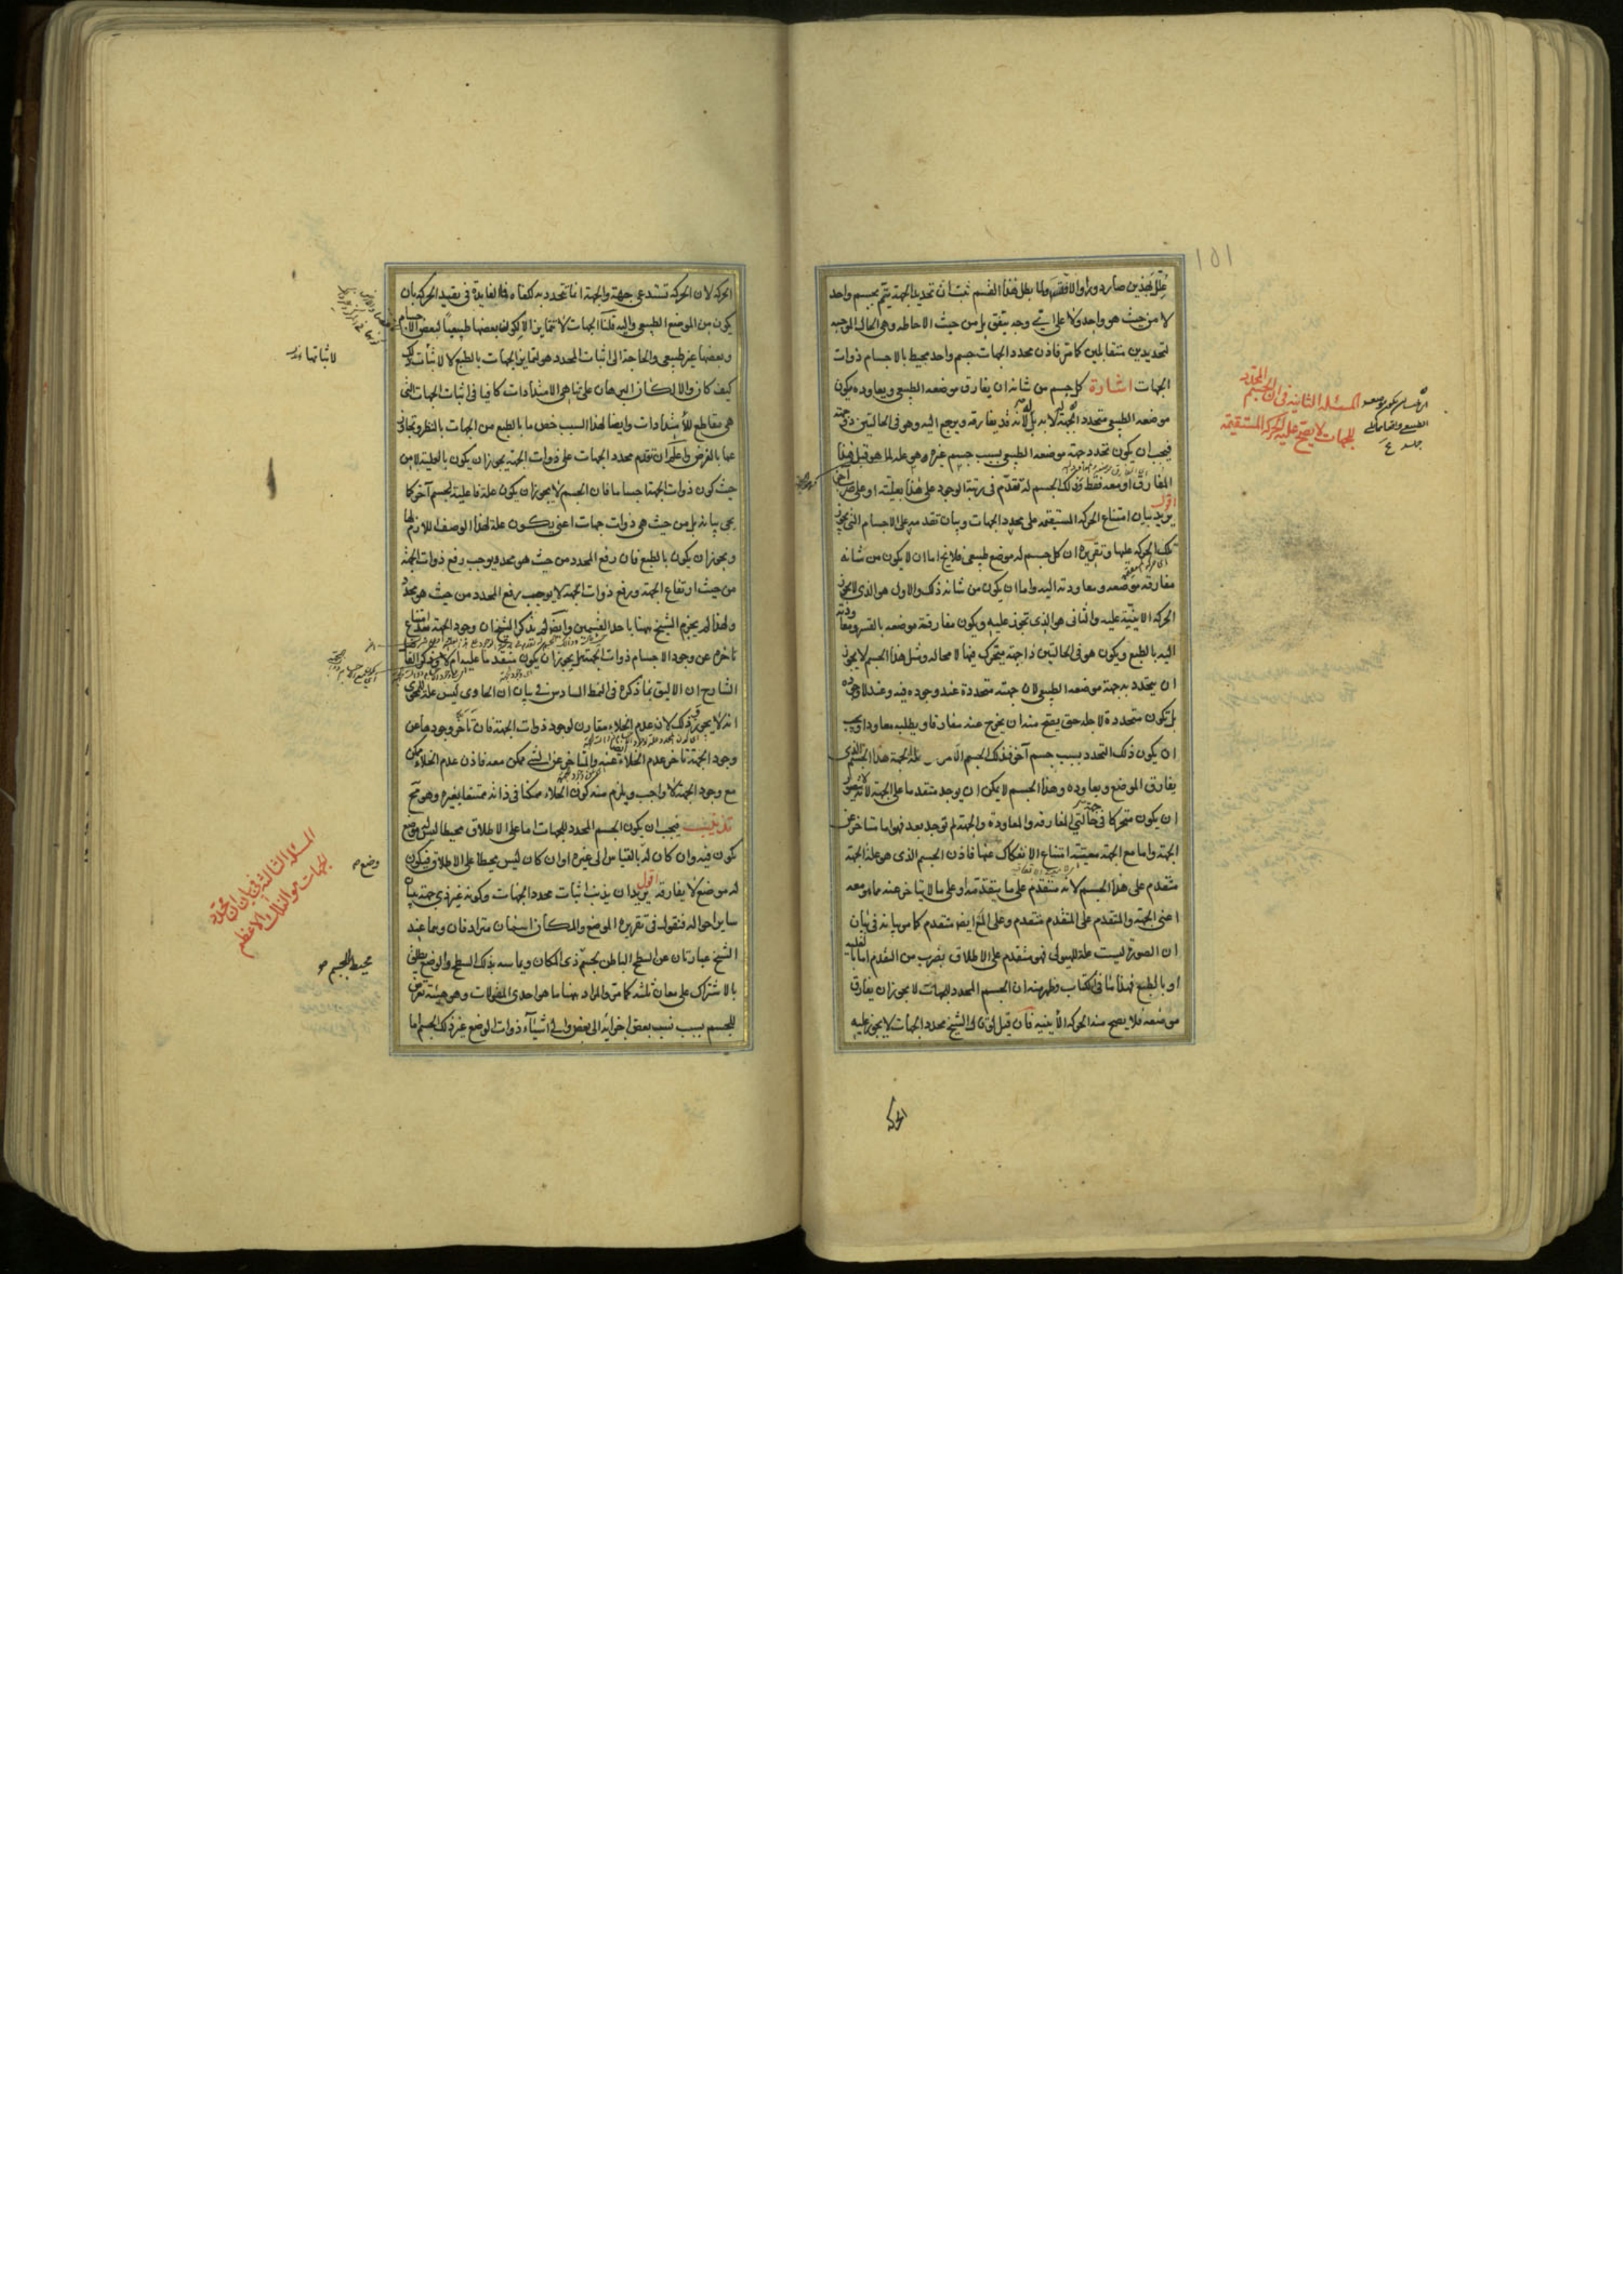 علل بجذبين صار دورا والا فتقسم ولما بطل هذا القسم ثبت ان تحديد الجهة يتم بجسم واحد
لا من حيث هو واحد ولا على اي وجه يتفق بل من حيث الاحاطه وهى الحالة الموجبه
لتحديدين متقابلين كما مر فاذن محدد الجهات جسم واحد محيط بالاجسام ذوات
الجهات اشارة كل جسم من شانه ان يفارق موضعه الطبيعى ويعاوده يكون
موضعه الطبيعى متحدد الجهة له لا به لانه قد يفارقه ويرجع اليه وهو فى الحالتين ذو جهة
فيجب ان يكون تحدد جهة موضعه الطبيعى بسبب جسم غيره وهو علة لما هو قبل هذا
المفارق او معه فقط وذلك الجسم له تقدم فى رتبة الوجود على هذا بعليّته او على ضرب آخر
اقول يريد بيان امتناع الحركة المستقيمة على محدد الجهات وبيان تقدمه على الاجسام التى يجوز
تلك الحركة عليها وتقريره ان كل جسم له موضع طبيعى فلا يخ اما ان لا يكون من شانه
مفارقه موضعه ومعاودته اليه واما ان يكون من شانه ذلك والاول هو الذى لا يجوز
الحركة الاينيّة عليه والثانى هو الذى تجوز عليه ويكون مفارقة موضعه بالقسر ومعاودته
اليه بالطبع ويكون هو فى الحالتين ذا جهة يتحرك فيها لا محاله ومثل هذا الجسم لا يجوز
ان يتحدد به جهة موضعه الطبيعى لان جهته متحددة عند وجوده فيه وعند لا وجوده
بل تكون متحددة لاجله حتى يصح منه ان يخرج عنه مفارقا ويطلبه معاودا ويجب
ان يكون ذلك التحدد بسبب جسم آخر فذلك الجسم الآخر علة لجهة هذا الجسم الذى
يفارق الموضع ويعاوده وهذا الجسم لا يمكن ان يوجد متقدما على الجهة لانه لا يتصور
ان يكون متحركا فى حالتى المفارقه والمعاودة والجهة لم توجد بعد فهو اما متاخر عن
الجهة واما مع الجهة معيّته امتناع الانفكاك عنها فاذن الجسم الذى هو علة الجهة
متقدم على هذا الجسم لانه متقدم على ما يتقدمه او على ما لا يتاخر عنه مما هو معه
اعنى الجهة والمتقدم على المتقدم متقدم وعلى المع ايضا متقدم كما مر بيانه فى بيان
ان الصورة ليست علة للهيولى فهو متقدم على الاطلاق بضرب من التقدم اما بالعلية
او بالطبع فهذا ما فى الكتاب وظهر منه ان الجسم المحدد للجهات لا يجوز ان يفارق
موضعه فلا يصح منه الحركة الأينية فان قيل لو قال الشيخ محدد الجهات لا يجوز عليه
الحركة
١٥١
المسئلة الثانية فى ان الجسم المحدد
للجهات لا يصح عليه الحركة المستقيمة
الحركة لان الحركة تستدعى جهة والجهة انما تتحدد به لكفاه فما الفايدة فى تقييد الحركة بان
يكون من الموضع الطبيعى واليه قلنا الجهات لا تتمايز الا لكون بعضها طبيعيا لبعض الاجسام
وبعضها غير طبيعى والحاجة الى اثبات المحدد هو لتمايز الجهات بالطبع لا لاثبات ذلك
كيف كان والا لكان البرهان على تناهى الامتدادات كافيا فى اثبات الجهات التى
هى مقاطع للامتدادات وايضا لهذا السبب خص ما بالطبع من الجهات بالنظر وتجافى
عما بالفرض واعلم ان تقدم محدد الجهات على ذوات الجهة يجوز ان يكون بالعلية لا من
حيث كون ذوات الجهة اجساما فان الجسم لا يجوز ان يكون علة فاعلية لجسم آخر كما
يجى بيانه بل من حيث هى ذوات جهات اعنى يكون علة لهذا الوصف اللازم لها
ويجوز ان يكون بالطبع فان رفع المحدد من حيث هو محدد يوجب رفع ذوات الجهة
من حيث ارتفاع الجهة ورفع ذوات الجهة لا يوجب رفع المحدد من حيث هو محدد
ولهذا لم يجزم الشيخ ههنا باحد القسمين وايضا لم يذكر الشيخ ان وجود الجهة بعد امتناع
تاخره عن وجود الاجسام ذوات الجهة هل يجوز ان يكون متقدما عليه ام لا وذكر الفاضل
الشارح ان الاليق بما ذكره فى النمط السادس فى بيان ان الحاوى ليس علة للمحوى
انه لا يجوز ذلك لان عدم الخلاء مقارن لوجود ذوات الجهة فان تاخر وجودها عن
وجود الجهة تاخر عدم الخلاء عنه والمتاخر عن الشى ممكن معه فاذن عدم الخلاء ممكن
مع وجود الجهة لا واجب ويلزم منه كون الخلاء ممكنا فى ذاته ممتنعا بغيره وهو مح
تذنيب فيجب ان يكون الجسم المحدد للجهات اما على الاطلاق محيطا ليس له موضع
يكون فيه وان كان له بالقياس الى غيره او ان كان ليس محيطا على الاطلاق فيكون
له موضع لا يفارقه اقول يريد ان يذنب اثبات محدد الجهات وكونه غير ذى جهة ببيان
ساير احواله فنقول فى تقريره الموضع والمكان اسمان مترادفان وهما عند
الشيخ عبارتان عن السطح الباطن لجسم ذى المكان ويماسه بذلك السطح والوضع يطلق
بالاشتراك على معان ثلثه كما مر والمراد ههنا ما هو احدى المقولات وهو هيئة تعرض
للجسم بسبب نسب بعض اجزائه الى بعض والى اشياء ذوات الوضع غير ذلك الجسم اما
لاثباتها
وضع
محيط للجسم
المسئلة الثالثة فى بيان ان محدد
الجهات هو الفلك الاعظم